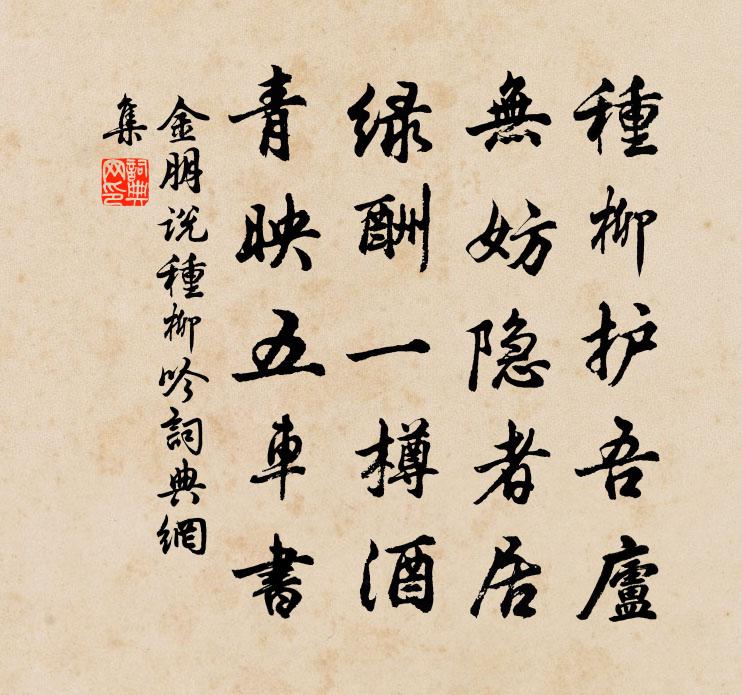 種柳护吾廬
無妨隐者居
緑酬一樽酒
青映五車書
金朋说種柳吟詞典網
集
詞典
网印